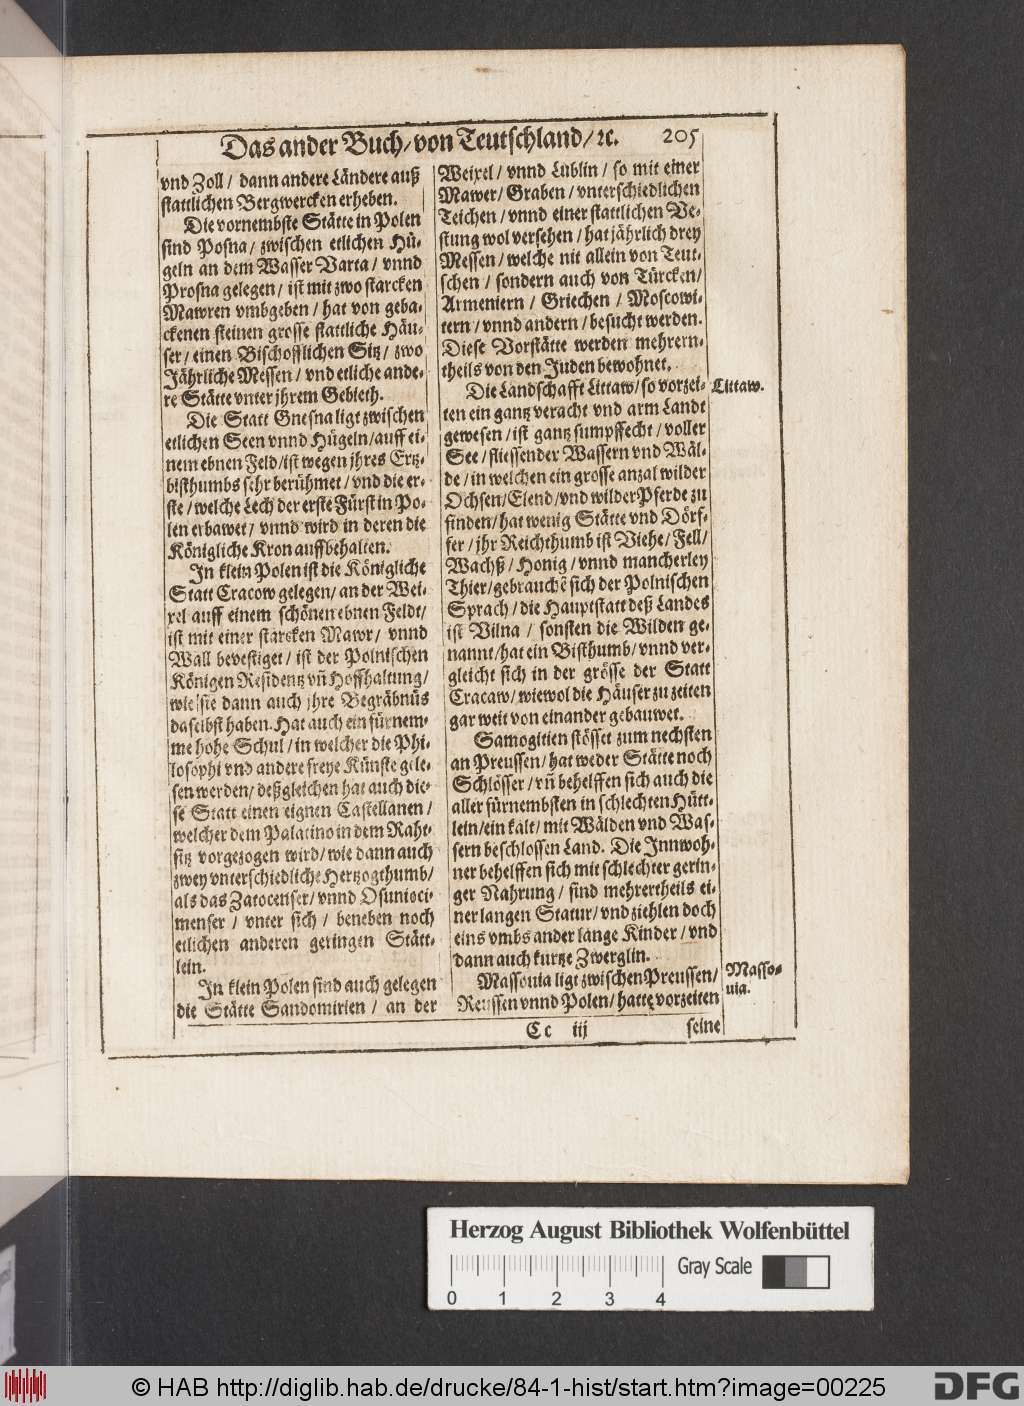 Das ander Buch/ von Teutschland/ ꝛc. 205
vnd Zoll/ dann andere Ländere auß
stattlichen Bergwercken erheben.
Die vornembste Stätte in Polen
sind Posna/ zwischen etlichen Hü-
geln an dem Wasser Varta/ vnnd
Prosna gelegen/ ist mit zwo starcken
Mawren vmbgeben/ hat von geba-
ckenen steinen grosse stattliche Häu-
ser/ einen Bischofflichen Sitz/ zwo
Jährliche Messen/ vnd etliche ande-
re Stätte vnter jhrem Gebieth.
Die Statt Gnesna ligt zwischen
etlichen Seen vnnd Hügeln/ auff ei-
nem ebnen Feld/ ist wegen jhres Ertz-
bisthumbs sehr berühmet/ vnd die er-
ste/ welche Lech der erste Fürst in Po-
len erbawet/ vnnd wird in deren die
Königliche Kron auffbehalten.
In klein Polen ist die Königliche
Statt Cracow gelegen/ an der Wei-
xel auff einem schönen ebnen Feldt/
ist mit einer starcken Mawr/ vnnd
Wall bevestiget/ ist der Polnischen
Königen Residentz vñ Hoffhaltung/
wie sie dann auch jhre Begräbnüs
daselbst haben. Hat auch ein fürnem-
me hohe Schul/ in welcher die Phi-
losophi vnd andere freye Künste gele-
sen werden/ deßgleichen hat auch die-
se Statt einen eignen Castellanen/
welcher dem Palatino in dem Raht-
sitz vorgezogen wird/ wie dann auch
zwey vnterschiedliche Hertzogthumb/
als das Zatocenser/ vnnd Osuntoci-
menser/ vnter sich/ beneben noch
etlichen anderen geringen Stätt-
lein.
In klein Polen sind auch gelegen
die Stätte Sandomirien/ an der
Weixel/ vnnd Lublin/ so mit einer
Mawer/ Graben/ vnterschiedlichen
Teichen/ vnnd einer stattlichen Ve-
stung wol versehen/ hat jährlich drey
Messen/ welche nit allein von Teut-
schen/ sondern auch von Türcken/
Armeniern/ Griechen/ Moscowi-
tern/ vnnd andern/ besucht werden.
Diese Vorstätte werden mehrern-
theils von den Juden bewohnet.
Die Landschafft Littaw/ so vorzei- Littaw.
ten ein gantz veracht vnd arm Landt
gewesen/ ist gantz sumpffecht/ voller
See/ fliessender Wassern vnd Wäl-
de/ in welchen ein grosse anzal wilder
Ochsen/ Elend/ vnd wilder Pferde zu
finden/ hat wenig Stätte vnd Dörf-
fer/ jhr Reichthumb ist Viehe/ Fell/
Wachß/ Honig/ vnnd mancherley
Thier/ gebrauchẽ sich der Polnischen
Sprach/ die Hauptstatt deß Landes
ist Vilna/ sonsten die Wilden ge-
nannt/ hat ein Bisthumb/ vnnd ver-
gleicht sich in der grösse der Statt
Cracaw/ wiewol die Häuser zu zeiten
gar weit von einander gebauwet.
Samogitien stösset zum nechsten
an Preussen/ hat weder Stätte noch
Schlösser/ vñ behelffen sich auch die
aller fürnembsten in schlechten Hütt-
lein/ ein kalt/ mit Wälden vnd Was-
sern beschlossen Land. Die Innwoh-
ner behelffen sich mit schlechter gerin-
ger Nahrung/ sind mehrertheils ei-
ner langen Statur/ vnd ziehlen doch
eins vmbs ander lange Kinder/ vnd
dann auch kurtze Zwerglin.
Massouia ligt zwischen Preussen/ Masso-
uia.
Reussen vnnd Polen/ hatte vorzeiten
Cc iij seine
Herzog August Bibliothek Wolfenbüttel
Gray Scale
0 1 2 3 4
© HAB http://diglib.hab.de/drucke/84-1-hist/start.htm?image=00225
DFG